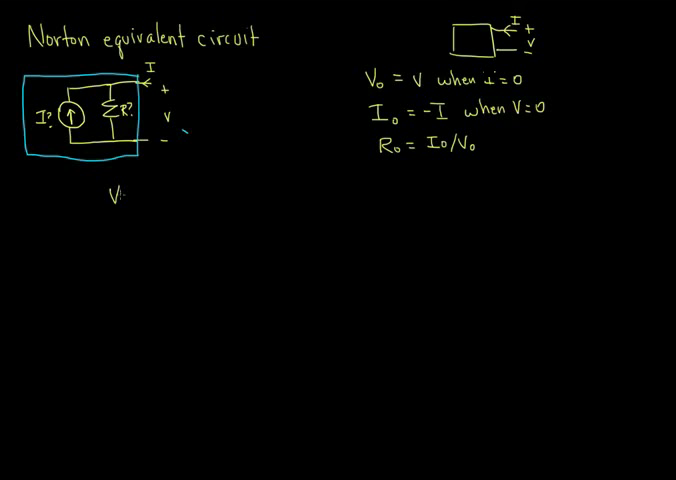 Norton equivalent circuit
I
+
I?
R?
V
-
V
I
+
V
-
V₀ = V when i = 0
I₀ = -I when V=0
R₀ = I₀/V₀